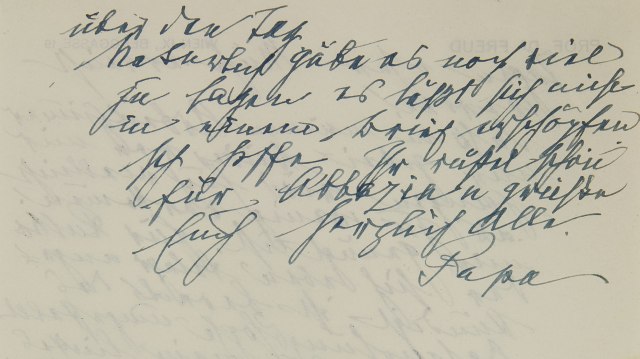 über den Tag
Natürlich gäbe es noch viel
zu sagen es läßt sich nicht
in einem Brief erschöpfen
Ich hoffe Ihr schon
für Abbazia u grüße
Euch herzlich Alle.
Papa